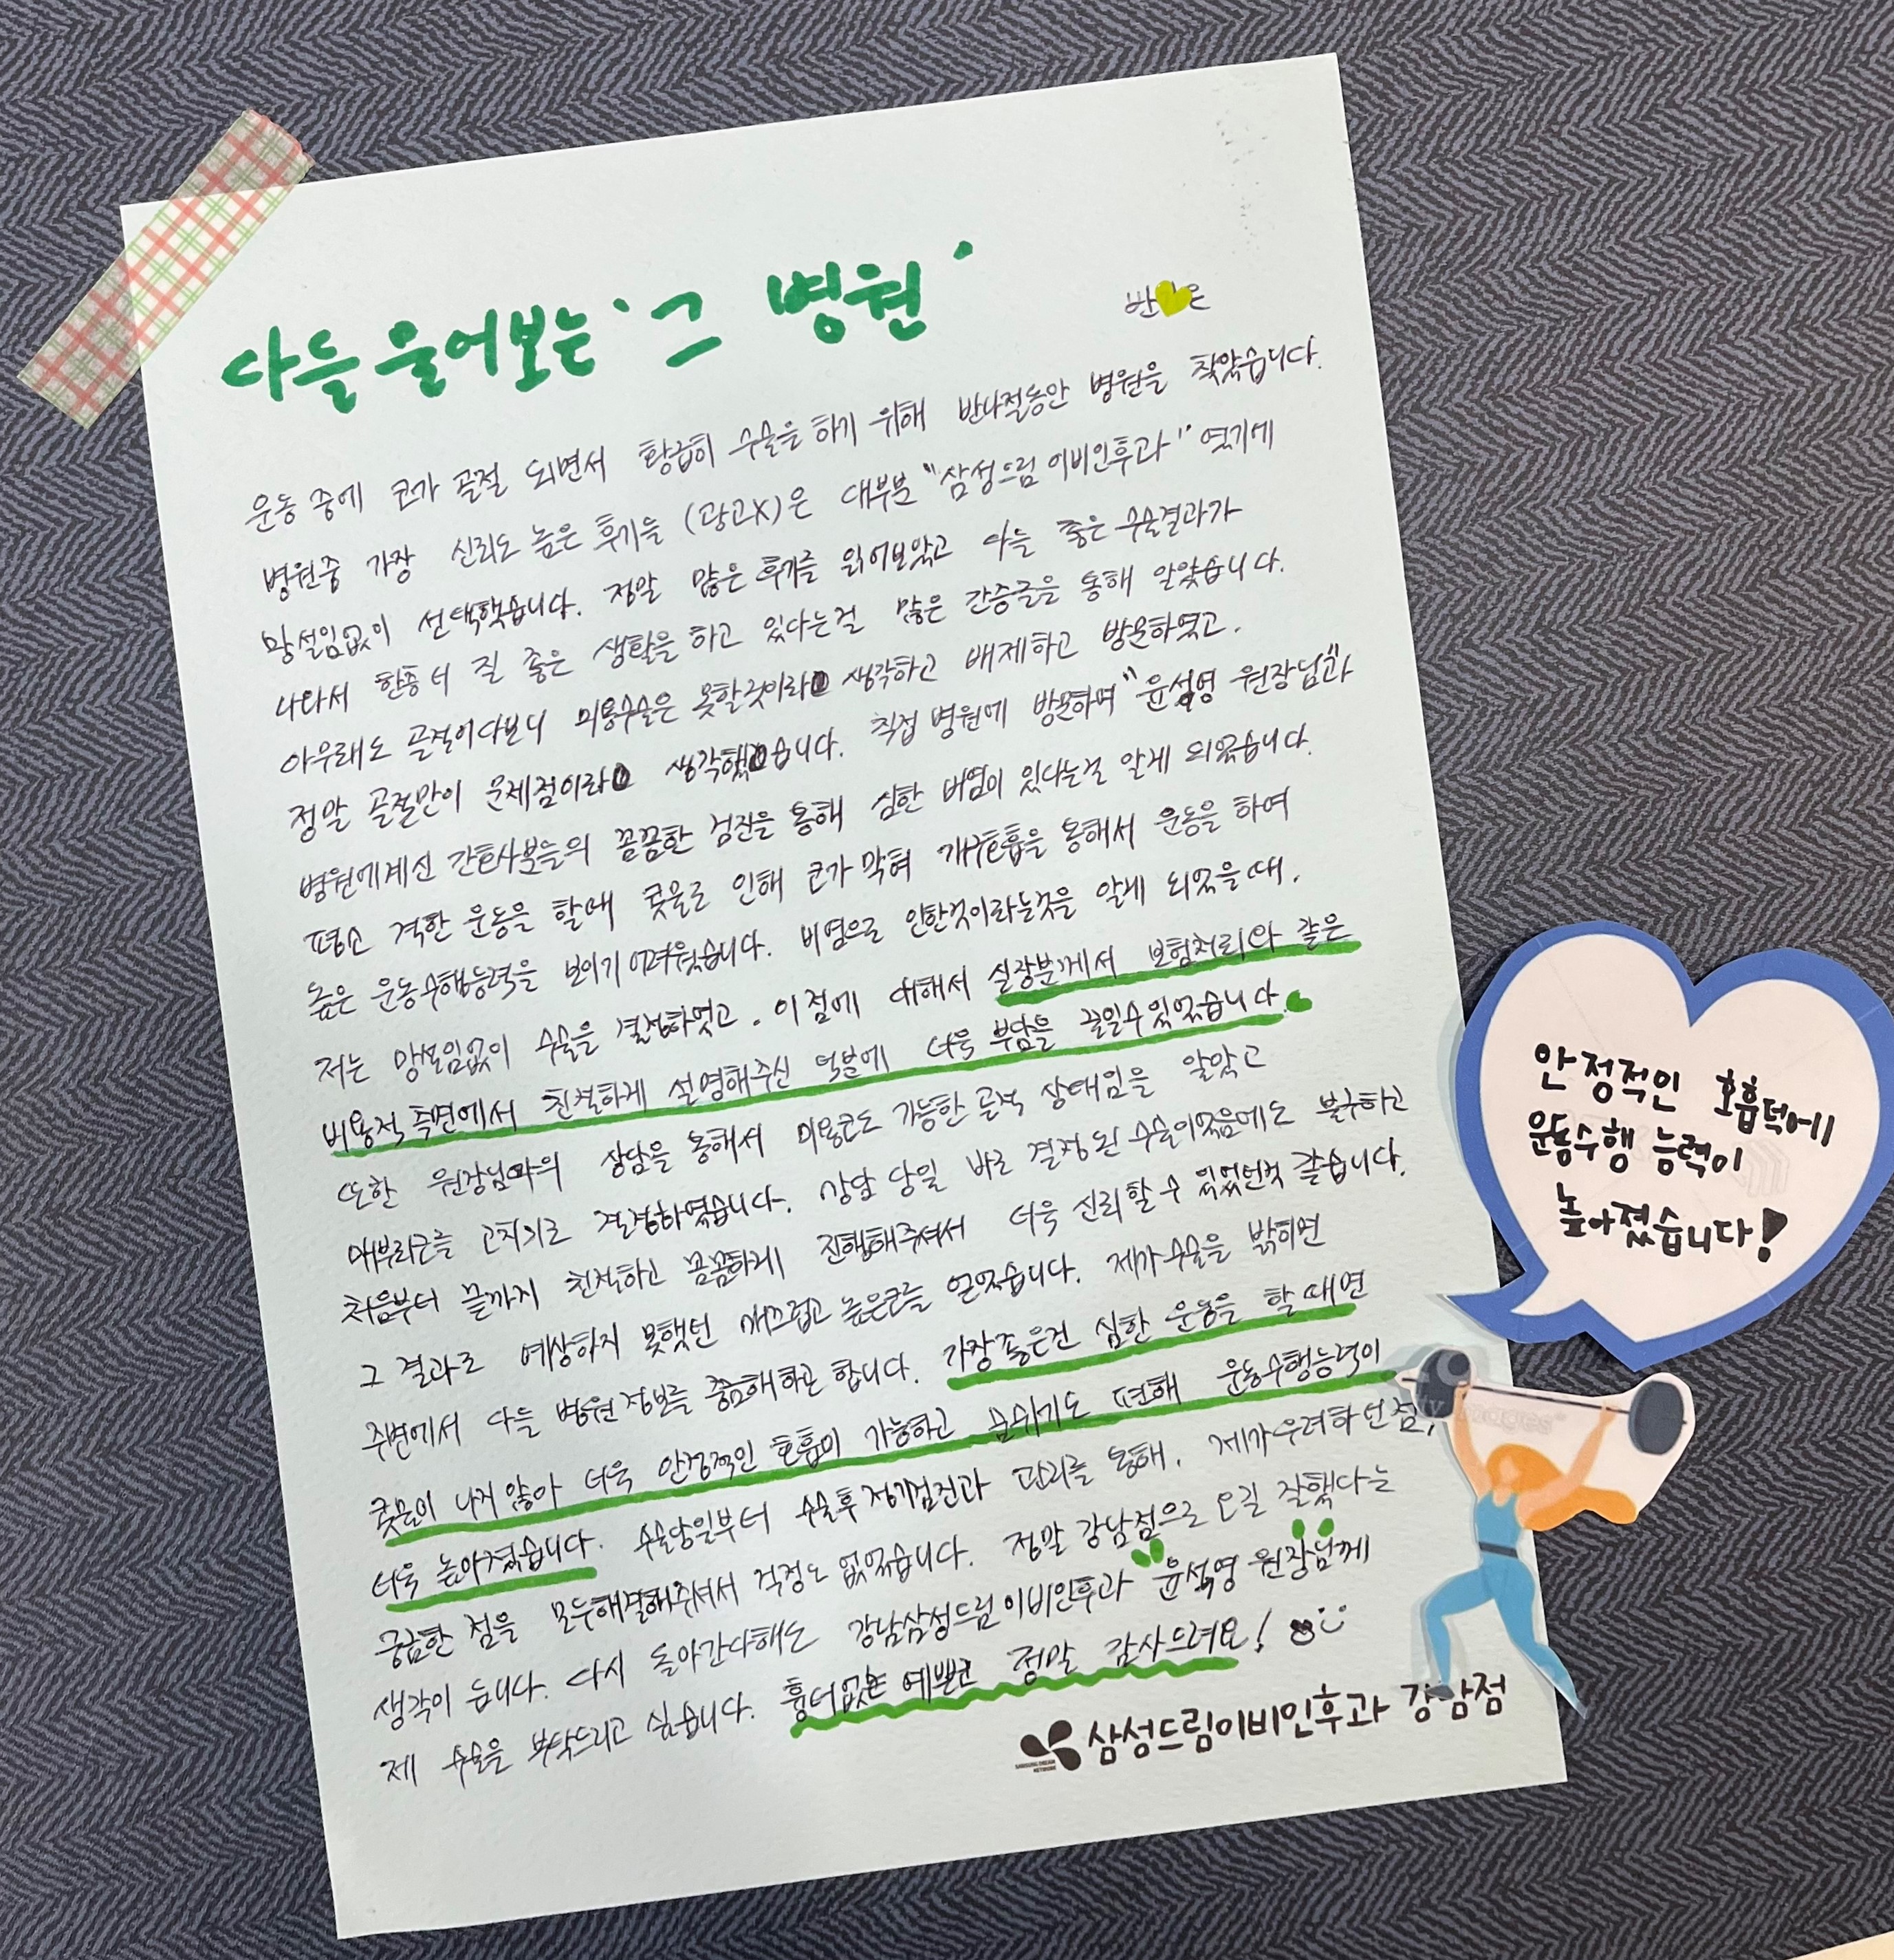 다들 물어보는 '그 병원'
반 은
운동 중에 코가 골절 되면서 황급히 수술을 하기 위해 반나절동안 병원을 찾았습니다.
병원중 가장 신뢰도 높은 후기들 (광고X)은 대부분 "삼성드림 이비인후과" 였기에
망설임없이 선택했습니다. 정말 많은 후기를 읽어보았고 다들 좋은 수술결과가
나와서 한층 더 질 좋은 생활을 하고 있다는걸 많은 간증글을 통해 알았습니다.
아무래도 골절이다보니 미용수술은 못할것이라 생각하고 배제하고 방문하였고.
정말 골절만이 문제점이라 생각했습니다. 직접 병원에 방문하며 "윤석영 원장님"과
병원에계신 간호사분들의 꼼꼼한 검진을 통해 심한 비염이 있다는걸 알게 되었습니다.
평소 격한 운동을 할때 콧물로 인해 코가 막혀 개구호흡을 통해서 운동을 하여
높은 운동수행능력을 보이기 어려웠습니다. 비염으로 인한것이라는것을 알게 되었을때.
저는 망설임없이 수술을 결정하였고. 이점에 대해서 실장분께서 보험처리와 같은
비용적 측면에서 친절하게 설명해주신 덕분에 더욱 부담을 줄일수있었습니다.
또한 원장님과의 상담을 통해서 미용코도 가능한 골격 상태임을 알았고
매부리코를 고치기로 결정하였습니다. 상담 당일 바로 결정된 수술이었음에도 불구하고
처음부터 끝까지 친절하고 꼼꼼하게 진행해주셔서 더욱 신뢰할수 있었던것 같습니다.
그 결과로 예상하지 못했던 매끄럽고 높은코를 얻었습니다. 제가수술을 밝히면
주변에서 다들 병원정보를 궁금해하곤 합니다. 가장좋은건 심한 운동을 할때면
콧물이 나지 않아 더욱 안정적인 호흡이 가능하고 숨쉬기도 편해 운동수행능력이
더욱 높아졌습니다. 수술당일부터 수술후 정기검진과 관리를 통해. 제가우려하던점,
궁금한 점을 모두해결해주셔서 걱정도 없었습니다. 정말 강남점으로 오길 잘했다는
생각이 듭니다. 다시 돌아간다해도 강남삼성드림이비인후과 "윤석영 원장님"께
제 수술을 부탁드리고 싶습니다. 흉터없는 예쁜코 정말 감사드려요!
삼성드림이비인후과 강남점
안정적인 호흡덕에
운동수행 능력이
높아졌습니다!